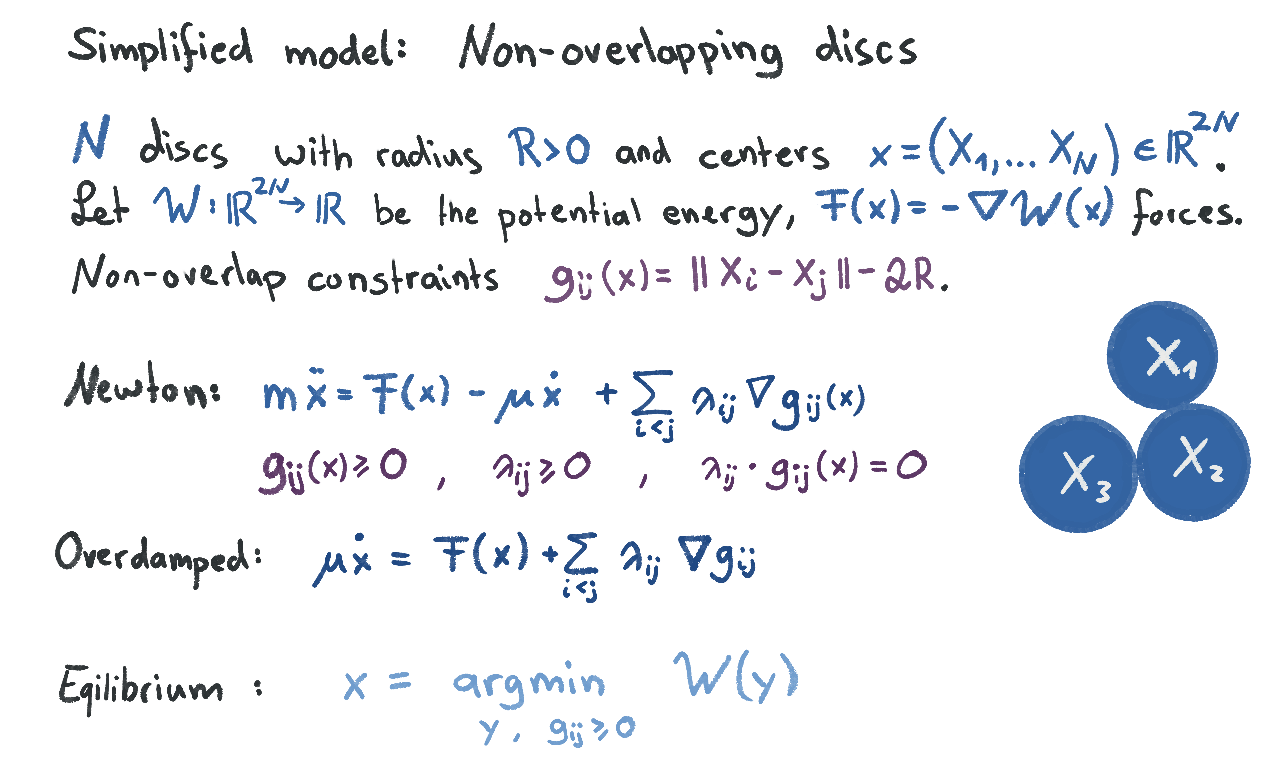 Simplified model: Non-overlapping discs
N discs with radius R>0 and centers x=(X₁,... X_N) ∈ ℝ²ᴺ.
Let W: ℝ²ᴺ → ℝ be the potential energy, F(x) = -∇W(x) forces.
Non-overlap constraints g_ij(x) = ‖X_i - X_j‖ - 2R.
X₁
Newton: mẍ = F(x) - μẋ + ∑_{i<j} λ_ij ∇g_ij(x)
g_ij(x) ≥ 0 , λ_ij ≥ 0 , λ_ij · g_ij(x) = 0
X₃ X₂
Overdamped: μẋ = F(x) + ∑_{i<j} λ_ij ∇g_ij
Eqilibrium : x = argmin W(y)
y, g_ij ≥ 0